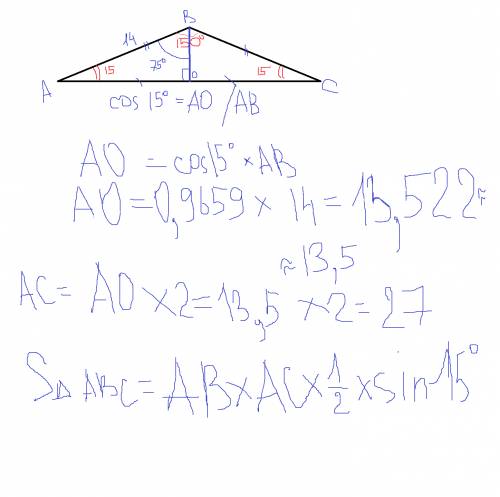 B
14 150°
75°
A 15 O 15 C
cos 15° = AO / AB
AO = cos15° × AB
AO = 0,9659 × 14 = 13,522 ≈
≈ 13,5
AC = AO × 2 = 13,5 × 2 = 27
S△ABC = AB × AC × 1/2 × sin 15°